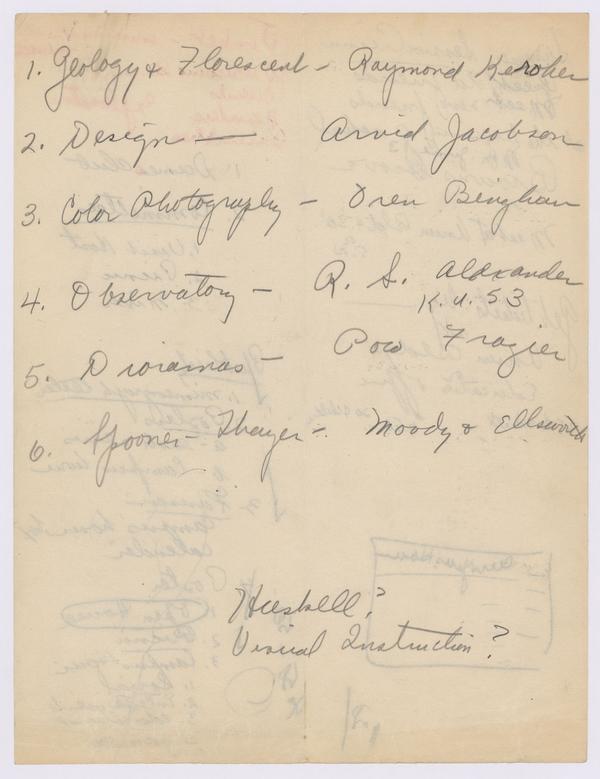 1. Geology & Florescent - Raymond Keroher
2. Design - Arvid Jacobson
3. Color Photography - Oren Bingham
4. Observatory - R. S. Aldxander
K.U. 53
5. Dioramas - Poco Frazier
6. Spooner-Thayer - Moody & Ellsworth
Haskell?
Visual Instruction?